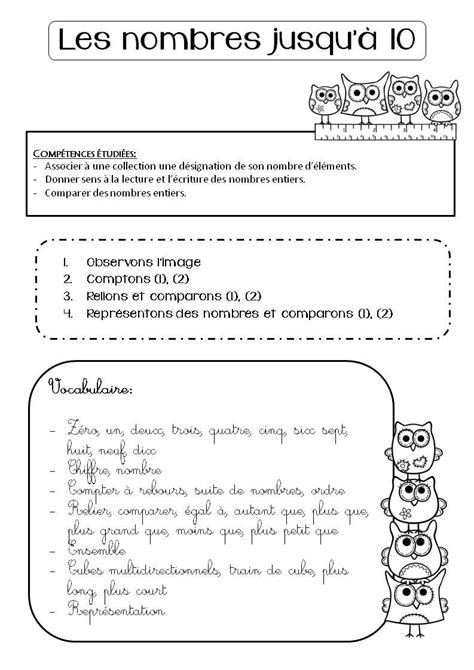 Les nombres jusqu'à 10
COMPÉTENCES ÉTUDIÉES:
- Associer à une collection une désignation de son nombre d'éléments.
- Donner sens à la lecture et l'écriture des nombres entiers.
- Comparer des nombres entiers.
1. Observons l'image
2. Comptons (1), (2)
3. Relions et comparons (1), (2)
4. Représentons des nombres et comparons (1), (2)
Vocabulaire:
- Zéro, un, deux, trois, quatre, cinq, six sept,
huit, neuf, dix
- Chiffre, nombre
- Compter à rebours, suite de nombres, ordre
- Relier, comparer, égal à, autant que, plus que,
plus grand que, moins que, plus petit que
- Ensemble
- Cubes multidirectionnels, train de cube, plus
long, plus court
- Représentation